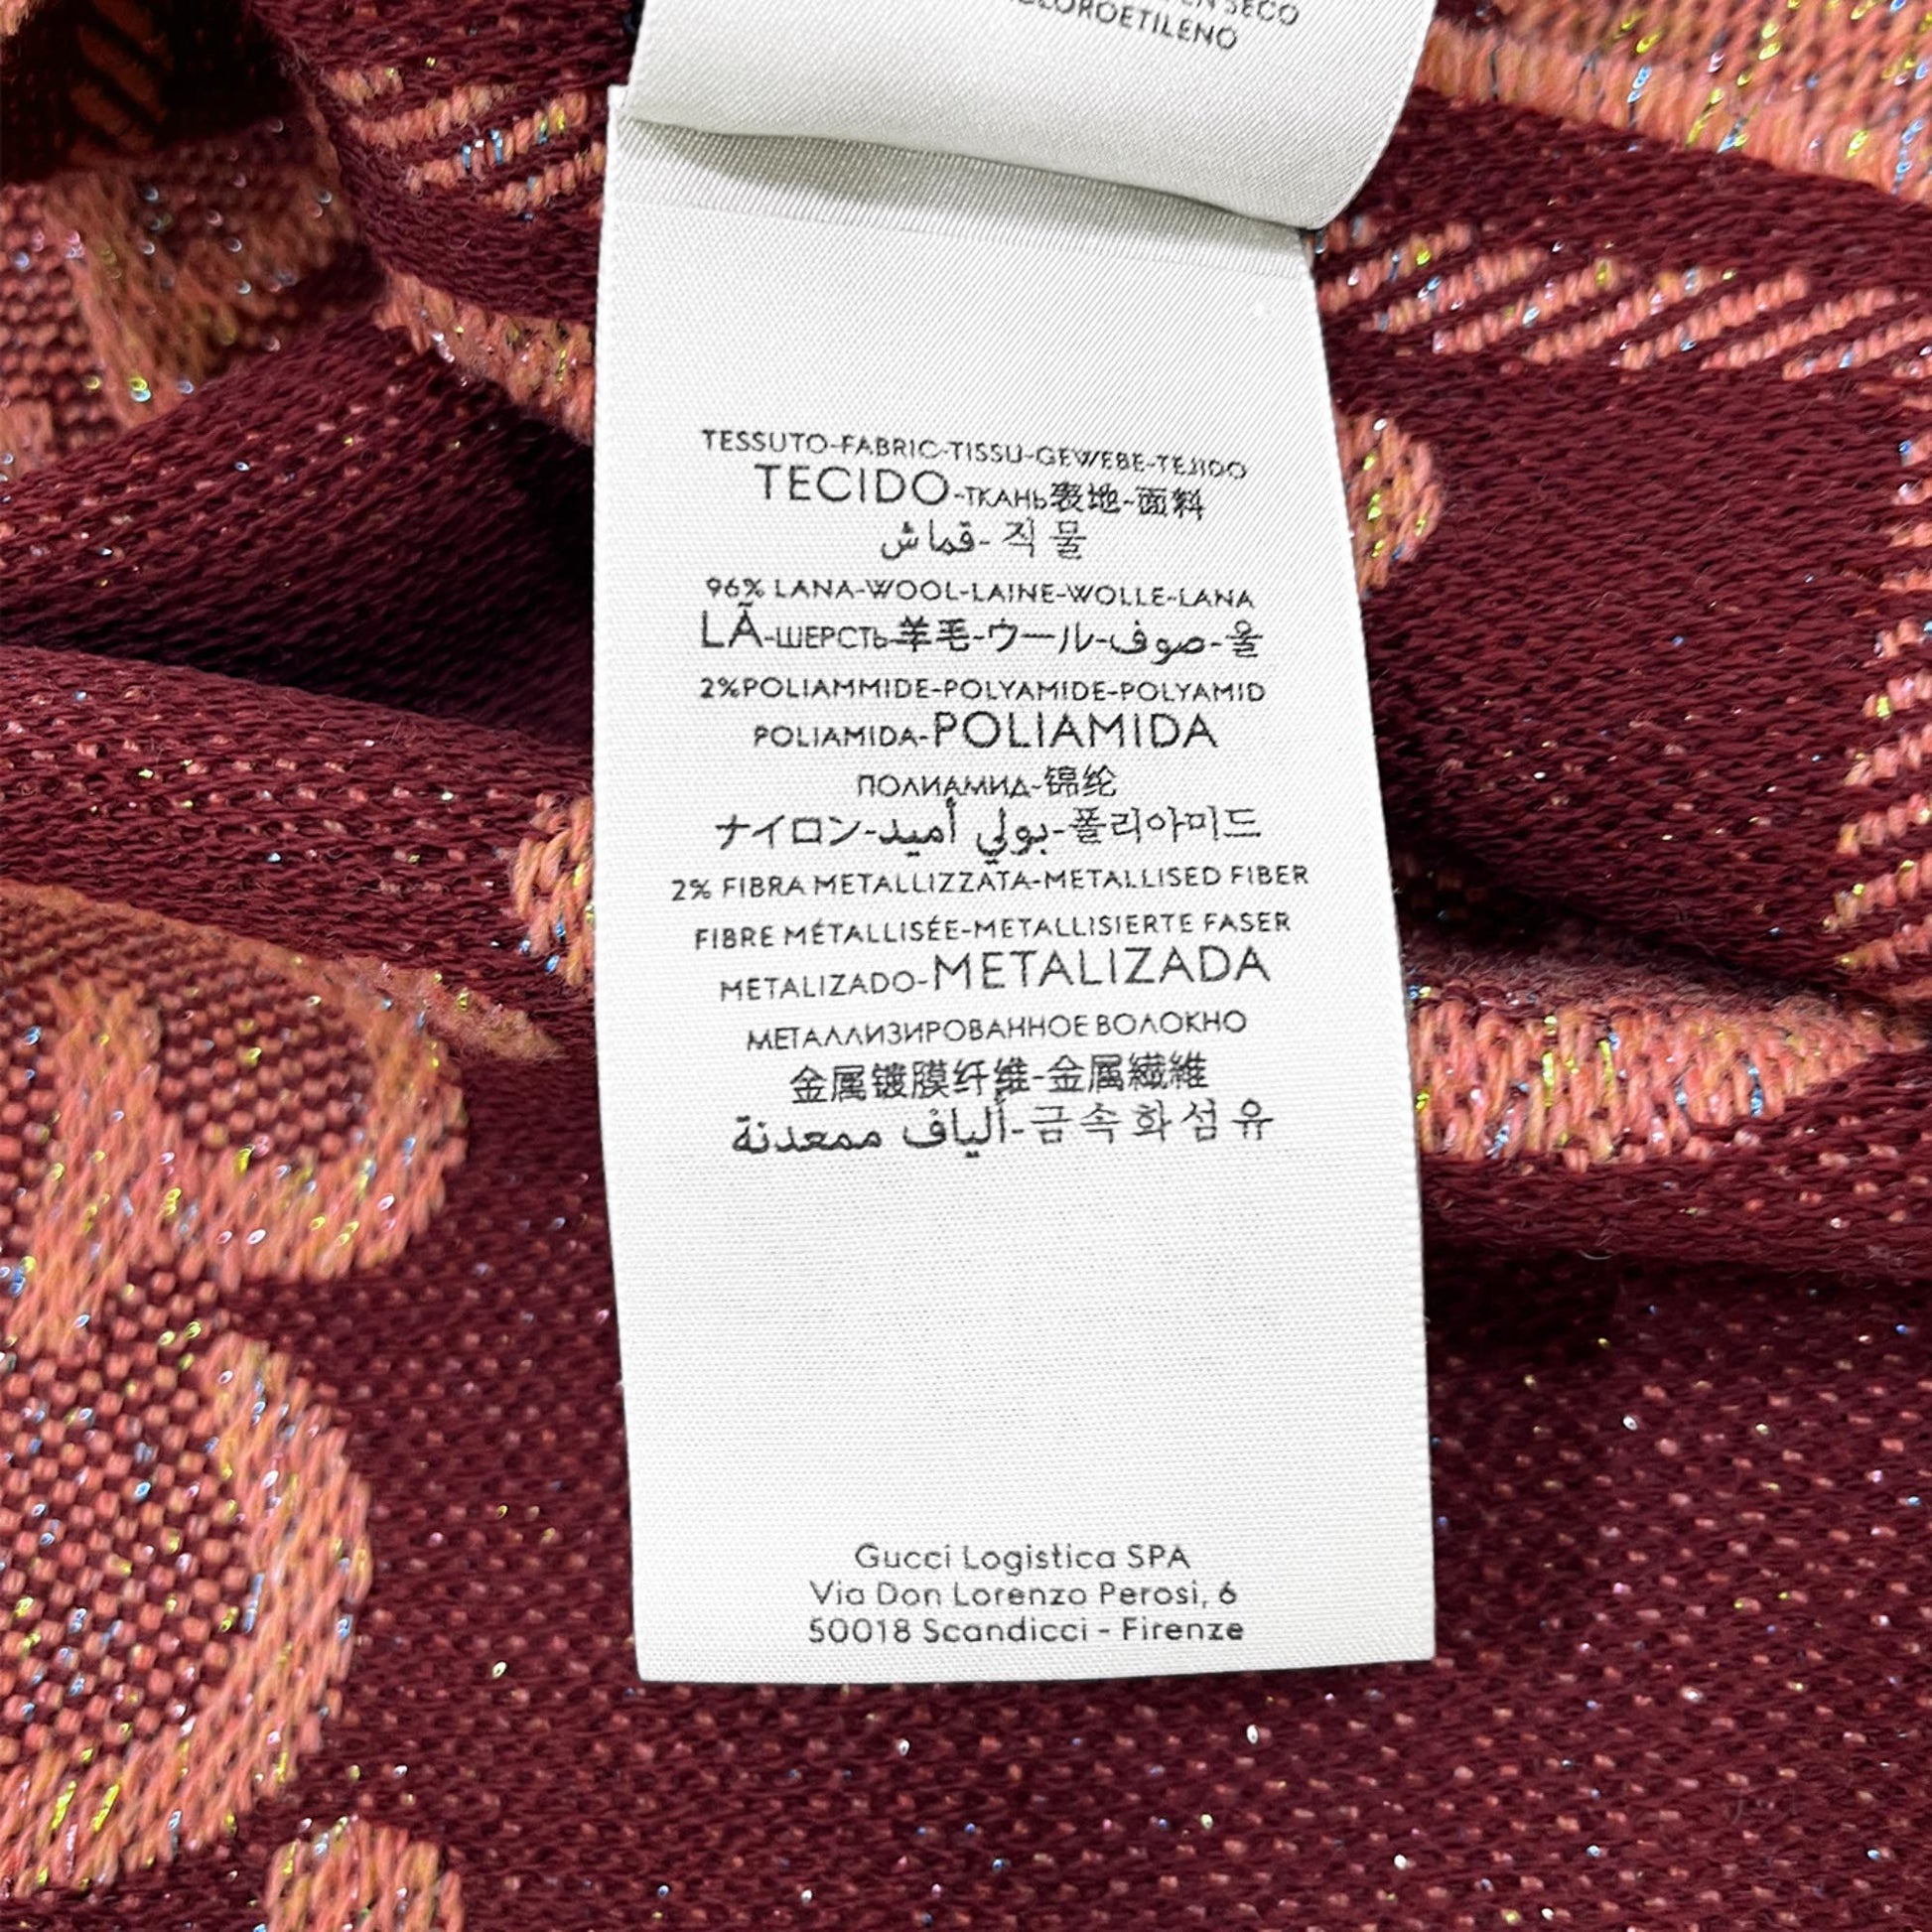 EN SECO
CLOROETILENO
TESSUTO-FABRIC-TISSU-GEWEBE-TEJIDO
TECIDO-ТКАНЬ表地-面料
قماش-직물
96% LANA-WOOL-LAINE-WOLLE-LANA
LÃ-ШЕРСТЬ-羊毛-ウール-صوف-울
2%POLIAMMIDE-POLYAMIDE-POLYAMID
POLIAMIDA-POLIAMIDA
ПОЛИАМИД-锦纶
ナイロン-بولي أميد-폴리아미드
2% FIBRA METALLIZZATA-METALLISED FIBER
FIBRE MÉTALLISÉE-METALLISIERTE FASER
METALIZADO-METALIZADA
МЕТАЛЛИЗИРОВАННОЕ ВОЛОКНО
金属镀膜纤维-金属繊維
ألياف ممعدنة-금속화섬유
Gucci Logistica SPA
Via Don Lorenzo Perosi, 6
50018 Scandicci - Firenze